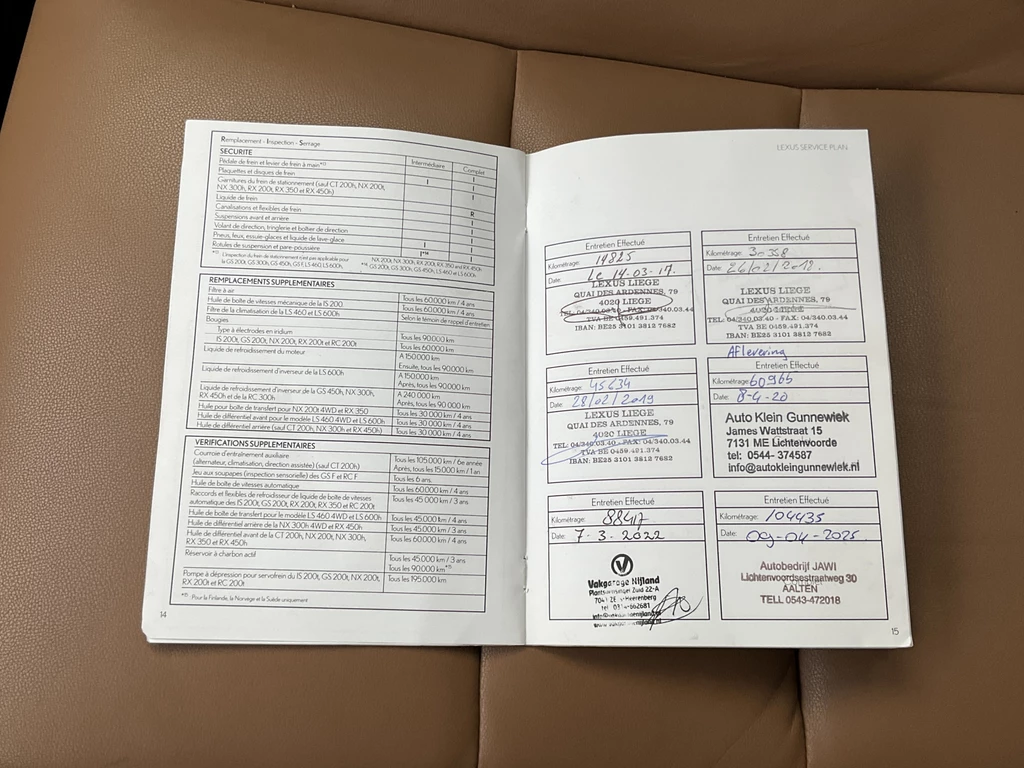 Remplacement - Inspection - Serrage
SECURITE
Intermédiaire
Complet
Pédale de frein et levier de frein à main
I
Plaquettes et disques de frein
I
I
Garnitures du frein de stationnement (sauf CT 200h, NX 200t,
NX 300h, RX 200t, RX 350 et RX 450h)
I
Liquide de frein
R
Canalisations et flexibles de frein
I
Suspensions avant et arrière
I
Volant de direction, tringlerie et boîtier de direction
I
Pneus, feux, essuie-glaces et liquide de lave-glace
I
I
Rotules de suspension et pare-poussière
I
REMPLACEMENTS SUPPLEMENTAIRES
Filtre à air
Tous les 60.000 km / 4 ans
Huile de boîte de vitesses mécanique de la IS 200
Tous les 60.000 km / 4 ans
Filtre de la climatisation de la LS 460 et LS 600h
Selon le témoin de rappel d'entretien
Bougies
Type à électrodes en iridium
Tous les 90.000 km
IS 200t, GS 200t, NX 200t, RX 200t et RC 200t
Tous les 60.000 km
Liquide de refroidissement du moteur
A 150.000 km
Ensuite, tous les 90.000 km
Liquide de refroidissement d'inverseur de la LS 600h
A 150.000 km
Après, tous les 90.000 km
Liquide de refroidissement d'inverseur de la GS 450h, NX 300h,
RX 450h et de la RC 300h
A 240 000 km
Après, tous les 90 000 km
Huile pour boîte de transfert pour NX 200t 4WD et RX 350
Tous les 30 000 km / 4 ans
Huile de différentiel avant pour le modèle LS 460 4WD et LS 600h
Tous les 30 000 km / 4 ans
Huile de différentiel arrière (sauf CT 200h, NX 300h et RX 450h)
Tous les 30 000 km / 4 ans
VERIFICATIONS SUPPLEMENTAIRES
Courroie d'entraînement auxiliaire
(alternateur, climatisation, direction assistée) (sauf CT 200h)
Tous les 105.000 km / 6e année
Après, tous les 15.000 km / 1 an
Jeu aux soupapes (inspection sensorielle) des GS F et RC F
Tous les 6 ans.
Huile de boîte de vitesses automatique
Tous les 60.000 km / 4 ans
Raccords et flexibles de refroidisseur de liquide de boîte de vitesses
automatique des IS 200t, GS 200t, RX 200t, RX 350 et RC 200t
Tous les 45.000 km / 3 ans
Huile de boîte de transfert pour le modèle LS 460 4WD et LS 600h
Tous les 45.000 km / 4 ans
Huile de différentiel arrière de la NX 300h 4WD et RX 450h
Tous les 45.000 km / 3 ans
Huile de différentiel avant de la CT 200h, NX 200t, NX 300h,
RX 350 et RX 450h
Tous les 60.000 km / 4 ans
Réservoir à charbon actif
Tous les 45.000 km / 3 ans
Tous les 90.000 km
Pompe à dépression pour servofrein du IS 200t, GS 200t, NX 200t,
RX 200t et RC 200t
Tous les 195.000 km
Pour la Finlande, la Norvège et la Suède uniquement
14
LEXUS SERVICE PLAN
Entretien Effectué
Kilométrage: 14825
Date: Le 14.03-17.
LEXUS LIEGE
QUAI DES ARDENNES, 79
4020 LIEGE
TEL. 04/340.03.40 - FAX: 04/340.03.44
TVA BE 0459.491.374
IBAN: BE25 3101 3812 7682
Entretien Effectué
Kilométrage: 30358
Date: 26/02/2018.
LEXUS LIEGE
QUAI DES ARDENNES, 79
4020 LIEGE
TEL. 04/340.03.40 - FAX: 04/340.03.44
TVA BE 0459.491.374
IBAN: BE25 3101 3812 7682
Entretien Effectué
Kilométrage: 45634
Date: 28/02/2019
LEXUS LIEGE
QUAI DES ARDENNES, 79
4020 LIEGE
TEL. 04/340.03.40 - FAX: 04/340.03.44
TVA BE 0459.491.374
IBAN: BE25 3101 3812 7682
Aflevering
Entretien Effectué
Kilométrage: 60965
Date: 8-4-20
Auto Klein Gunnewiek
James Wattstraat 15
7131 ME Lichtenvoorde
tel: 0544- 374587
info@autokleingunnewiek.nl
Entretien Effectué
Kilométrage: 88417
Date: 7-3-2022
Vakgarage Nijland
Plantsoensingel Zuid 22-A
7041 ZE 's-Heerenberg
tel 0314-662681
Entretien Effectué
Kilométrage: 104435
Date: 09-04-2025.
Autobedrijf JAWI
Lichtenvoordsestraatweg 30
AALTEN
TELL 0543-472018
15